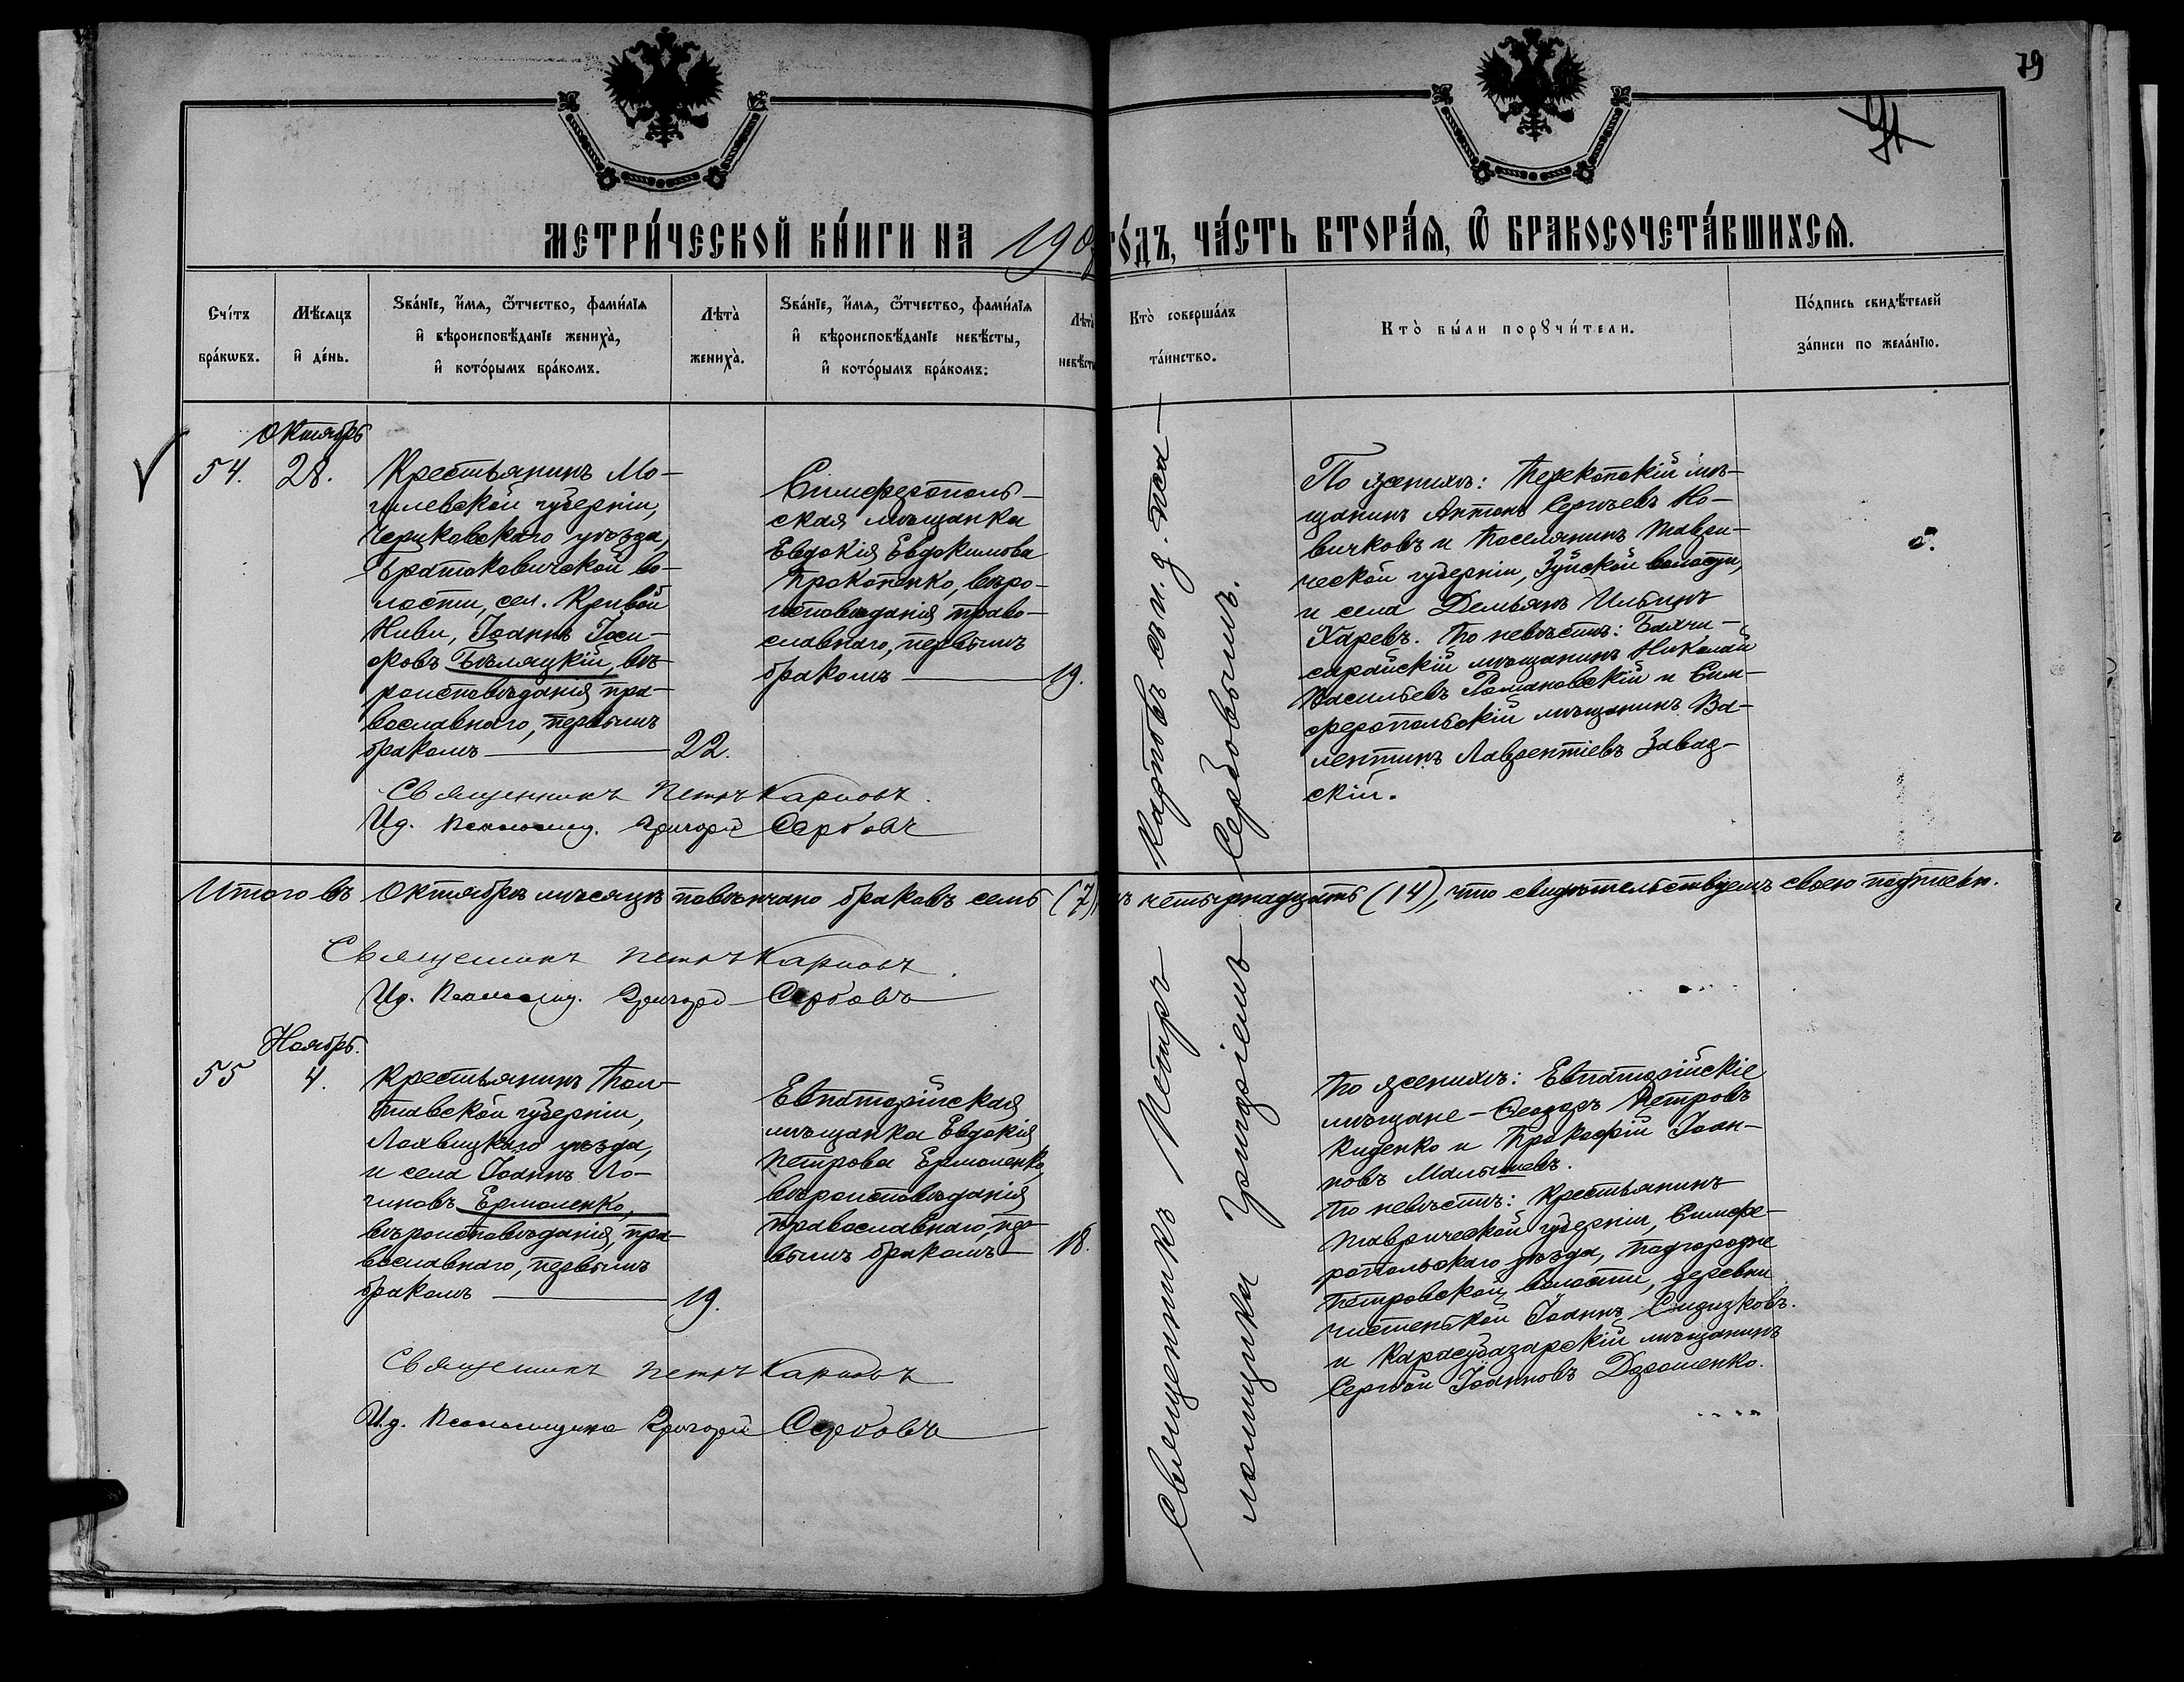 79
МЕТРИ́ЧЕСКОЙ КНИ́ГИ НА 190
ГО́ДЪ, ЧА́СТЬ ВТОРА́Я, Ѿ БРАКОСОЧЕТА́ВШИХСЯ.
Сче́тъ бра́кѡвъ.
Мѣ́сяцъ и҆ де́нь.
Ѕва́нїе, и҆́мя, ѻ҆́тчество, фами́лїя
и҆ вѣроисповѣ́данїе жениха̀,
и҆ кото́рымъ бра́комъ.
Лѣта̀
жениха̀.
Ѕва́нїе, и҆́мя, ѻ҆́тчество, фами́лїя
и҆ вѣроисповѣ́данїе невѣ́сты,
и҆ кото́рымъ бра́комъ:
Лѣта̀
невѣ́сты
Кто̀ соверша́лъ
та́инство.
Кто̀ бы́ли порꙋчи́тели.
По́дпись свидѣ́телей
за́писи по жела́нїю.
Октябрь
54.
28.
Крестьянинъ Мо-
гилевской губерніи,
Чериковскаго уѣзда,
Братьковичской во-
лости, сел. Кривой
Нивы, Іоаннъ Іоси-
фовъ Бѣляцкій, вѣ-
роисповѣданія пра-
вославнаго, первымъ
бракомъ
22.
Симферополь-
ская мѣщанка
Евдокія Евдокимова
Прокопенко, вѣро-
исповѣданія право-
славнаго, первымъ
бракомъ
19.
По женихѣ: Перекопскій мѣ-
щанинъ Антонъ Сергѣевъ Но-
вичковъ и поселянинъ Таври-
ческой губерніи, Зуйской волости,
и села Демьянъ Ильинъ
Харевъ. По невѣстѣ: Бахчи-
сарайскій мѣщанинъ Николай
Васильевъ Романовскій и Сим-
феропольскій мѣщанинъ Ва-
лентинъ Лаврентіевъ Завад-
скій.
Священникъ Петръ Карповъ.
И.д. Псаломщ. Григорій Сербовъ
Итого въ Октябрѣ мѣсяцѣ повѣнчано браковъ семь (7),
четырнадцать (14), что свидѣтельствуемъ своею подписью.
Священникъ Петръ Карповъ.
И.д. Псаломщ. Григорій Сербовъ
Ноябрь.
55
4.
Крестьянинъ Пол-
тавской губерніи,
Лохвицкаго уѣзда,
и села Іоаннъ Ло-
гиновъ Ермоленко,
вѣроисповѣданія, пра-
вославнаго, первымъ
бракомъ
19.
Евпаторійская
мѣщанка Евдокія
Петрова Ермоленко,
вѣроисповѣданія
православнаго, пер-
вымъ бракомъ
18.
По женихѣ: Евпаторійскіе
мѣщане - Ѳеодоръ Петровъ
Киденко и Прокофій Іоан-
новъ Малышевъ.
По невѣстѣ: Крестьянинъ
Таврической губерніи, Симфе-
ропольскаго уѣзда, Подгородне
Петровской волости, деревни
Чистенькой Іоаннъ
и Карасубазарскій мѣщанинъ
Сергѣй Іоанновъ Дорошенко.
Священникъ Петръ Карповъ
И.д. Псаломщика Григорій Сербовъ
Священникъ Петръ Карповъ съ и.д. пса-
ломщика Григоріемъ Сербовымъ.